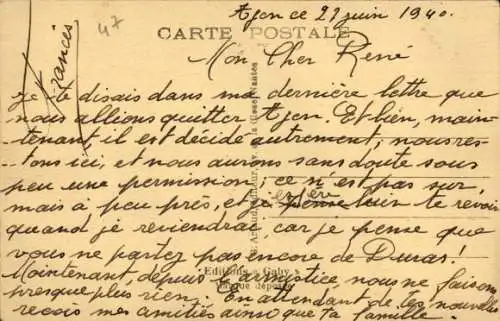 47
Agen ce 27 juin 1940.
CARTE POSTALE
Mon Cher René
Je te disais dans ma dernière lettre que
nous allions quitter Agen. Et bien, main-
tenant, il est décidé autrement, nous res-
tons ici, et nous aurons sans doute sous
peu une permission; ce n'est pas sur,
mais à peu près, et j'espère te revoir
quand je reviendrai, car je pense que
vous ne partez pas encore de Duras!
Maintenant, depuis l'armistice, nous ne faisons
presque plus rien. En attendant de tes nouvelles
reçois mes amitiés ainsi que ta famille.
Editions "Gaby"